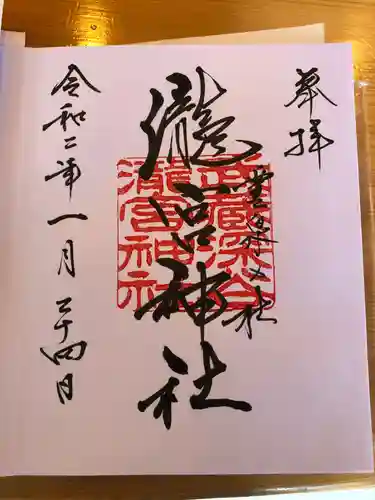 奉拝
瀧宮神社
豊泉乃社
武蔵深谷
瀧宮神社
令和二年一月二十四日